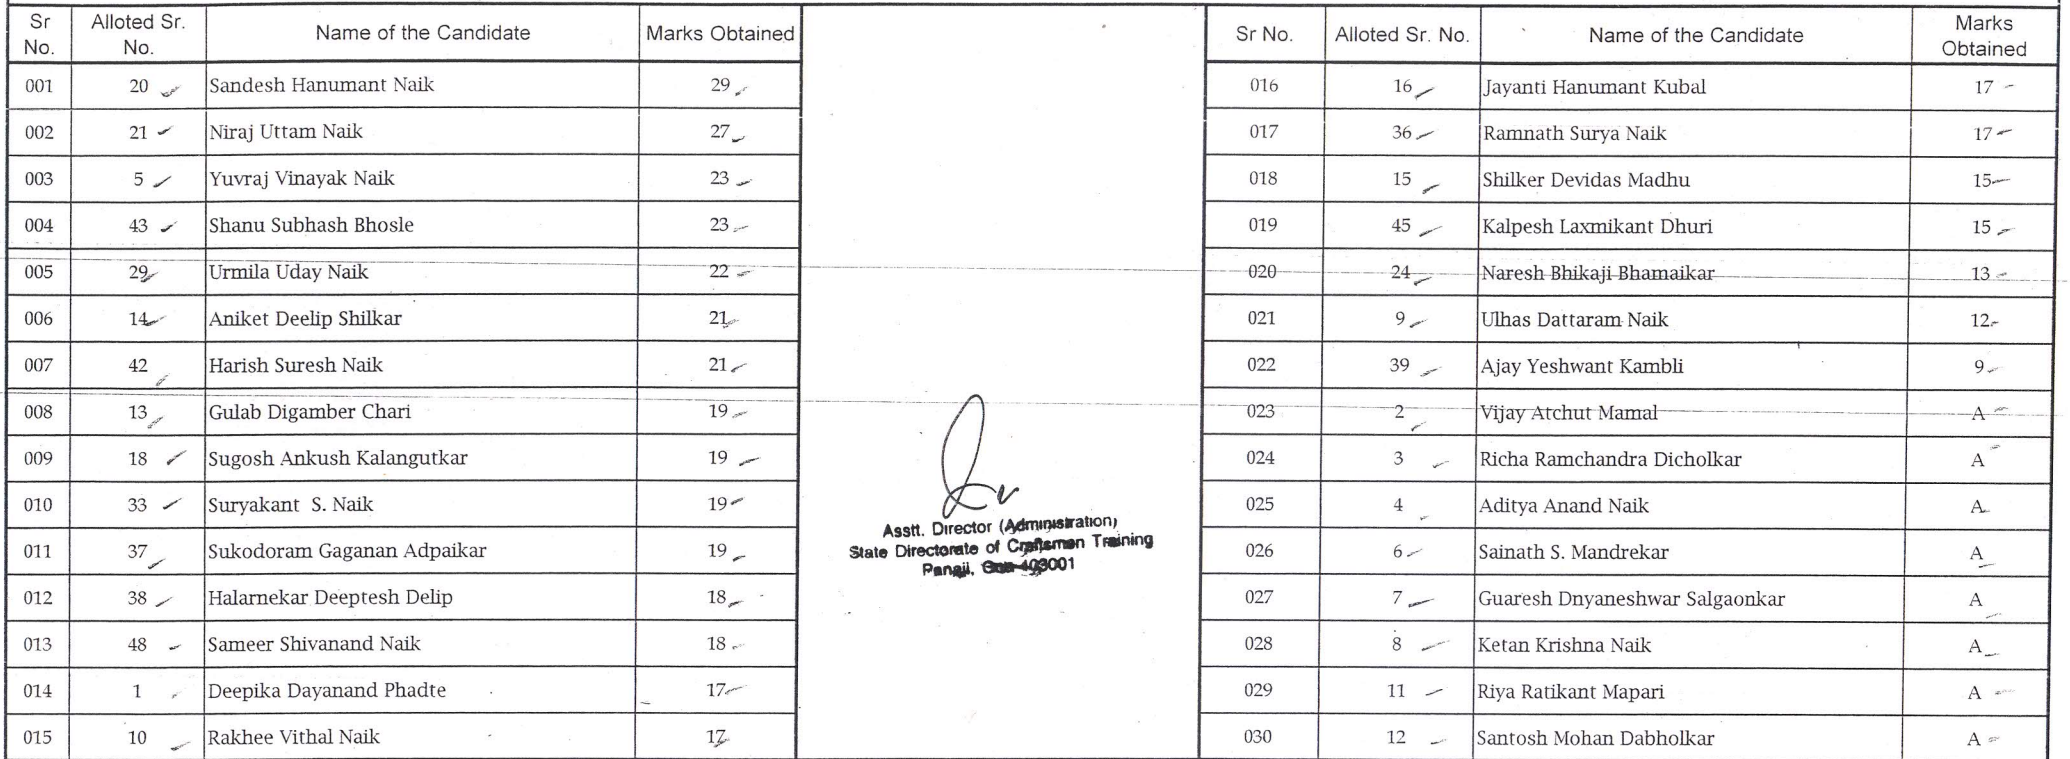 Sr No. Alloted Sr. No. Name of the Candidate Marks Obtained
001 20 Sandesh Hanumant Naik 29
002 21 Niraj Uttam Naik 27
003 5 Yuvraj Vinayak Naik 23
004 43 Shanu Subhash Bhosle 23
005 29 Urmila Uday Naik 22
006 14 Aniket Deelip Shilkar 21
007 42 Harish Suresh Naik 21
008 13 Gulab Digamber Chari 19
009 18 Sugosh Ankush Kalangutkar 19
010 33 Suryakant S. Naik 19
011 37 Sukodoram Gaganan Adpaikar 19
012 38 Halarnekar Deeptesh Delip 18
013 48 Sameer Shivanand Naik 18
014 1 Deepika Dayanand Phadte 17
015 10 Rakhee Vithal Naik 17
Asstt. Director (Administration)
State Directorate of Craftsmen Training
Panaji, Goa-403001
Sr No. Alloted Sr. No. Name of the Candidate Marks Obtained
016 16 Jayanti Hanumant Kubal 17
017 36 Ramnath Surya Naik 17
018 15 Shilker Devidas Madhu 15
019 45 Kalpesh Laxmikant Dhuri 15
020 24 Naresh Bhikaji Bhamaikar 13
021 9 Ulhas Dattaram Naik 12
022 39 Ajay Yeshwant Kambli 9
023 2 Vijay Atchut Mamal A
024 3 Richa Ramchandra Dicholkar A
025 4 Aditya Anand Naik A
026 6 Sainath S. Mandrekar A
027 7 Guaresh Dnyaneshwar Salgaonkar A
028 8 Ketan Krishna Naik A
029 11 Riya Ratikant Mapari A
030 12 Santosh Mohan Dabholkar A